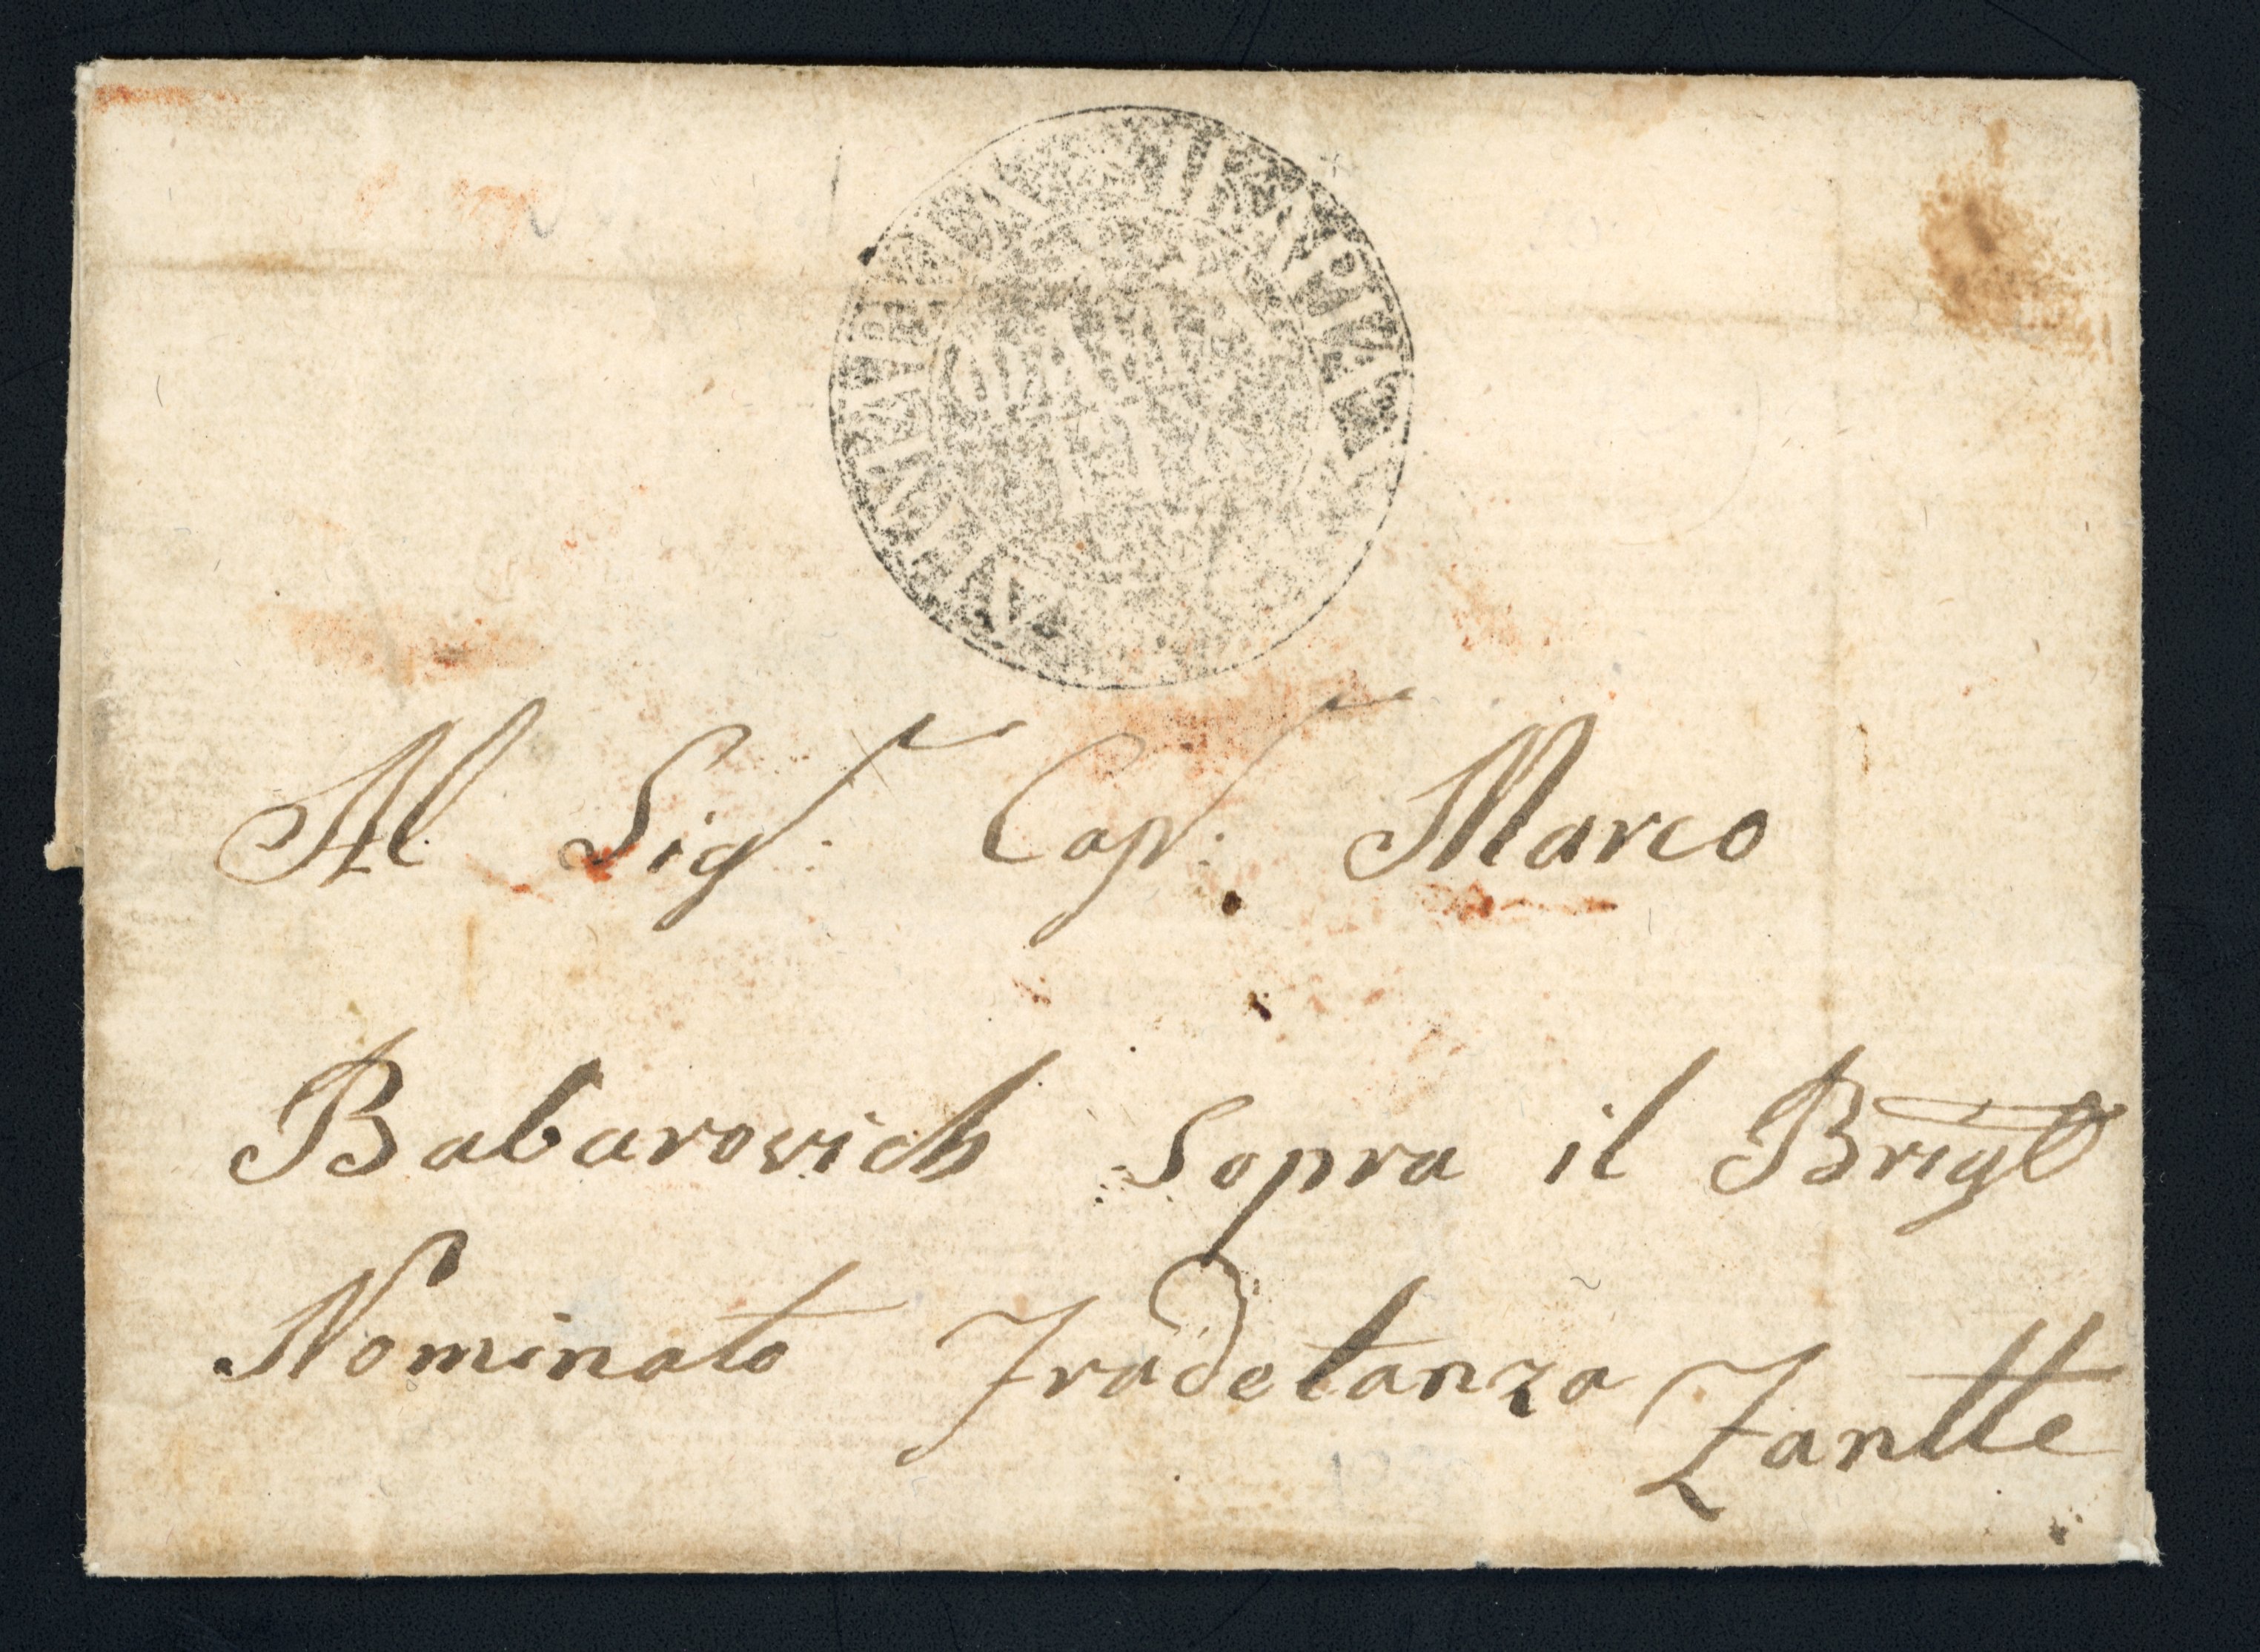 Al Sigr: Capn: Marco
Babarovich Sopra il Brigto
Nominato Tradetanza Zantte